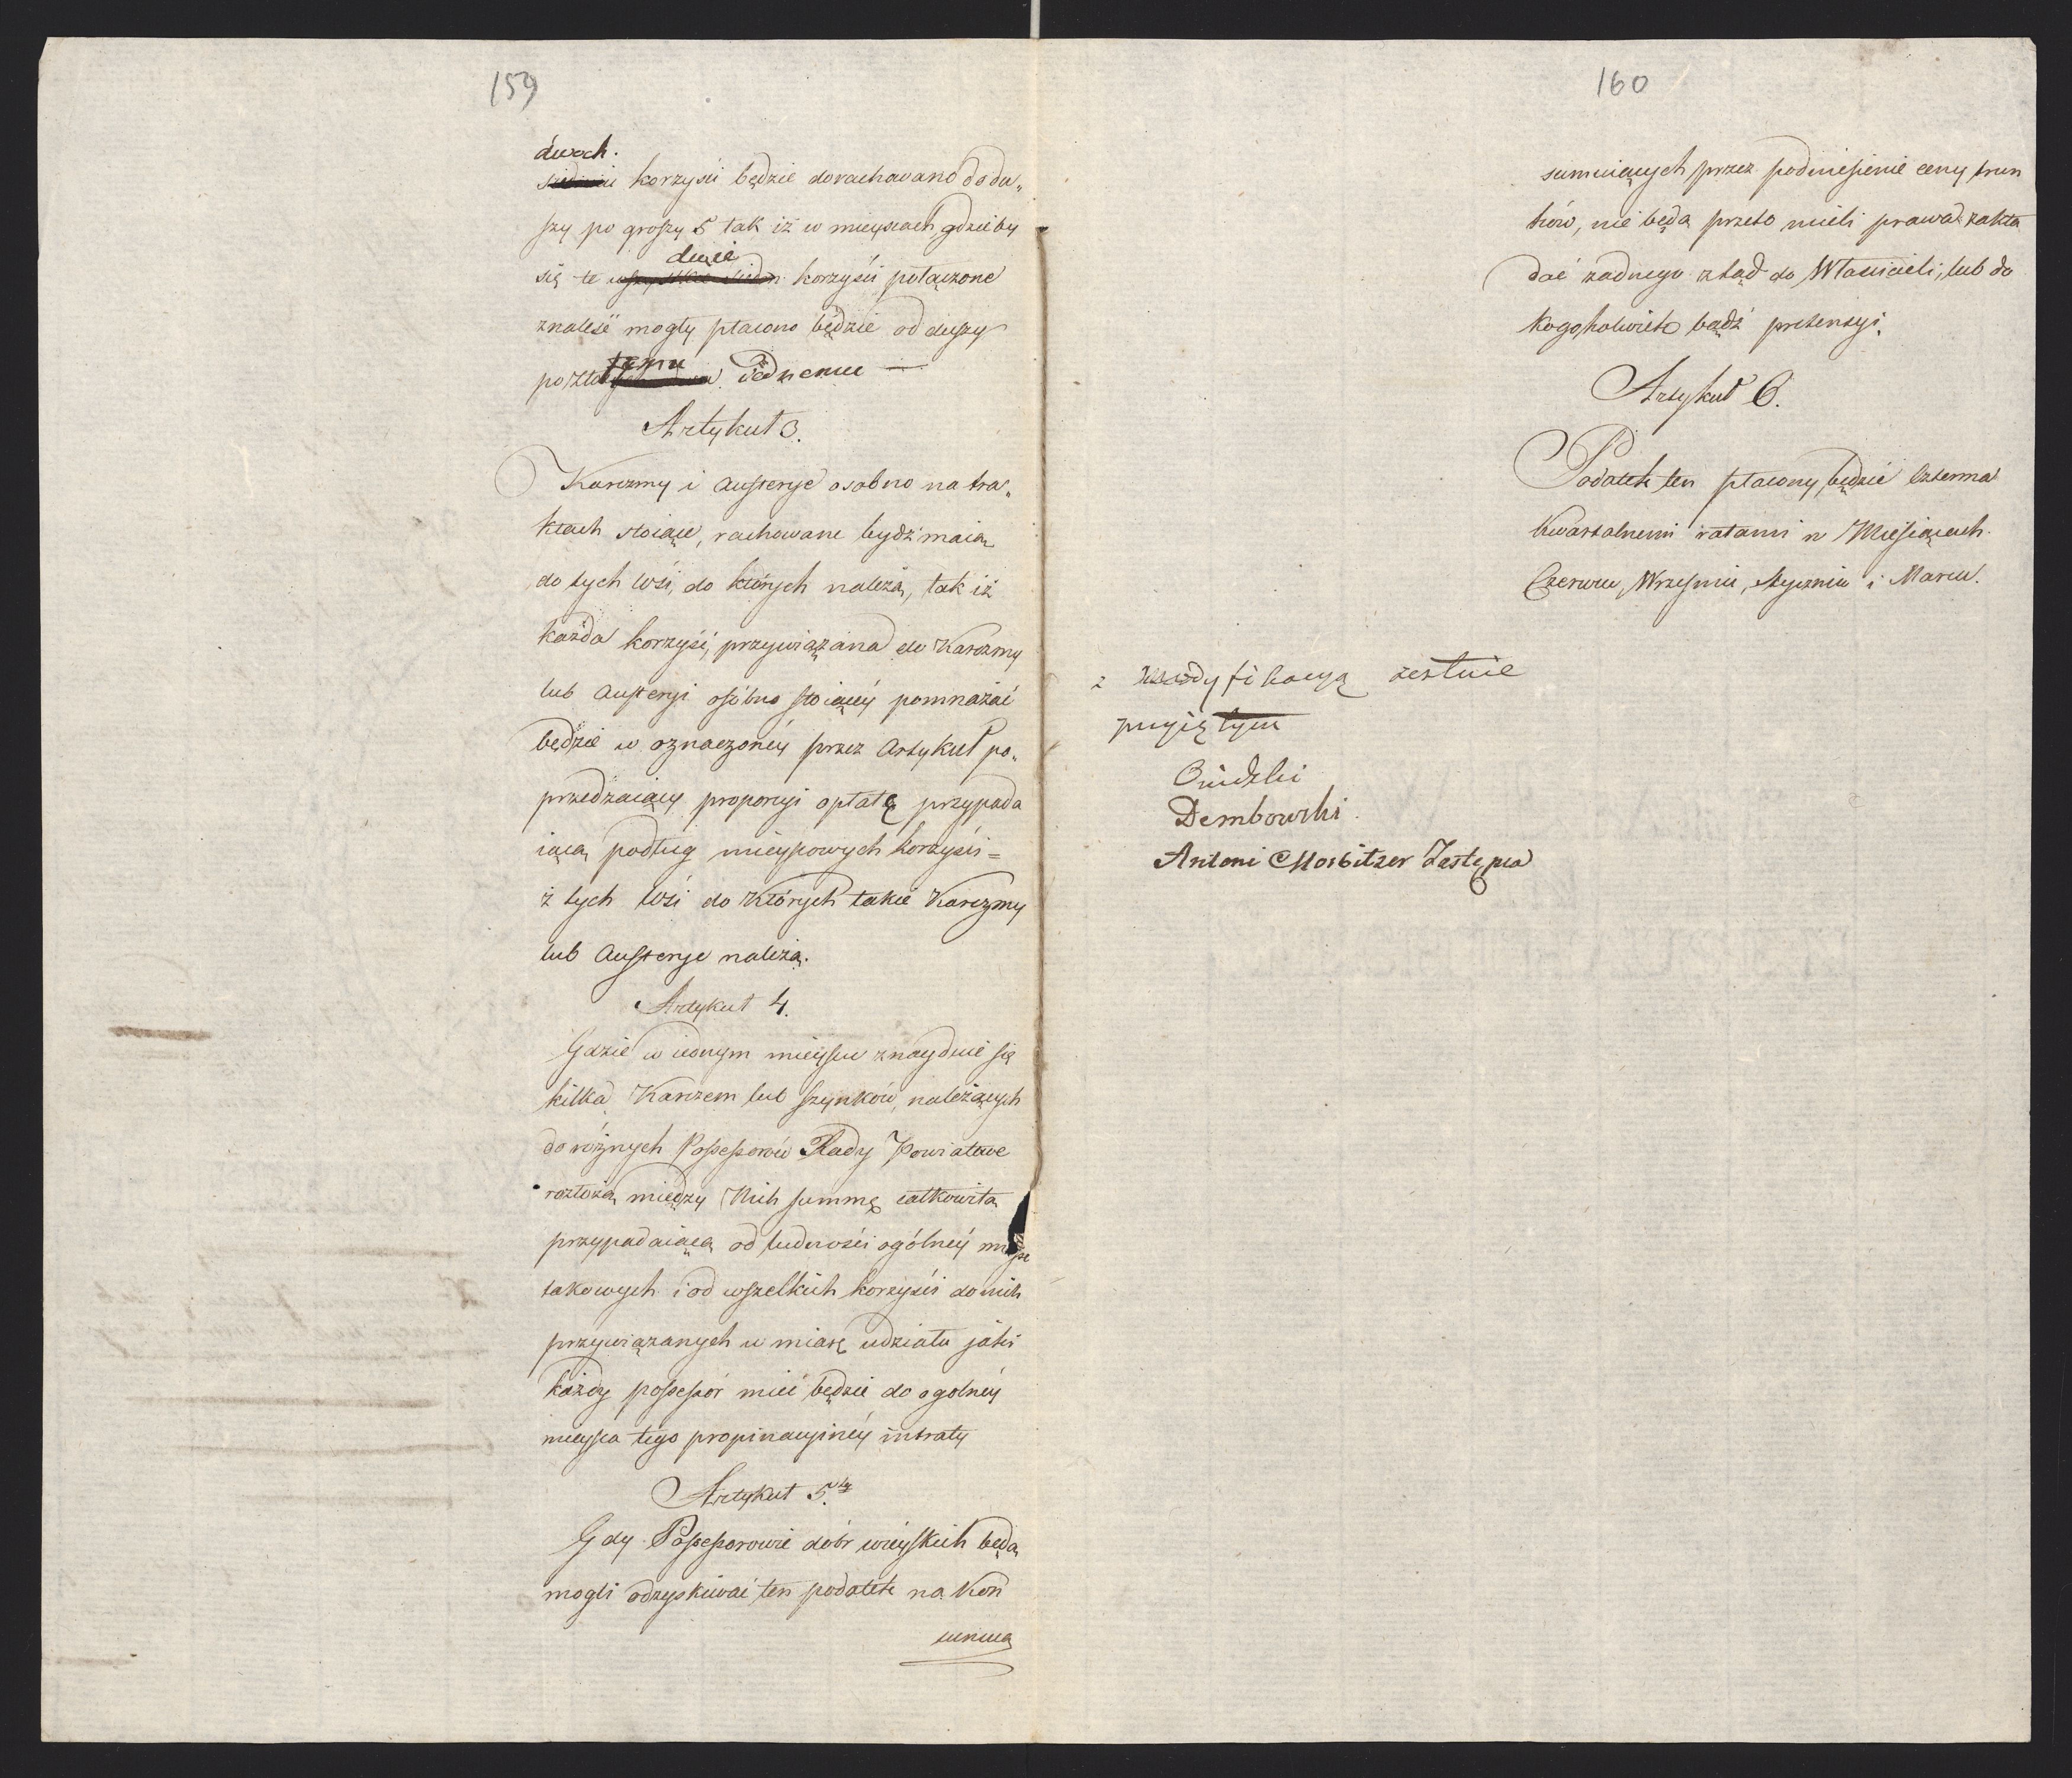 159
dwoch.
siedmiu korzyści będzie dorachowano do du„
szy po groszy 5 tak iż w mieyscach, gdzie by
dwie
się te wszystkie siedm korzyści połączone
znaleść mogły płacono będzie od duszy
temu
po złot Jednemu —
Artykuł 3.
Karczmy i austerye osobno na tra„
ktach stoiące, rachowane bydź maią
do tych wsi, do których należą, tak iż
każda korzyść, przywiązana do Karczmy
lub austeryi osóbno stoiącéy pomnażać
będzie w oznaczonéy przez Artykuł po„
przedzaiący proporcyi opłatę przypada
iącą podług mieyscowych korzyści=
z tych wsi do których takie Karczmy
lub austerye należą.
Artykuł 4.
Gdzie w iednym mieyscu znayduie się
kilka Karczem lub szynków, należących
do różnych Possessorów Rady Powiatowe
rozłożą między Nich summę całkowitą
przypadaiącą od ludności ogólnéy
takowych i od wszelkich korzyści do nich
przywiązanych w miarę udziału jaki
każdy possessor mieć będzie do ogolnéy
mieysca tego propinacyinéy intraty
Artykuł 5.ty
Gdy Possessorowie dóbr wieyskich będą
mogli odzyskiwać ten podatek na kon
sumuią
160
sumuiących przez podniesienie ceny trun
ków, nie będą przeto mieli prawa zakła
dać żadnego ztąd do Właścicieli, lub do
kogożkolwiek bądź pretensyi.
Artykuł 6.
Podatek ten płacony będzie czterma
kwartalnemi ratami w Miesiącach
Czerwcu, Wrześniu, Styczniu i Marcu.
z modyfikacyą iestnie
przyiętym
Dembowski
Antoni Morbitzer Zastępca